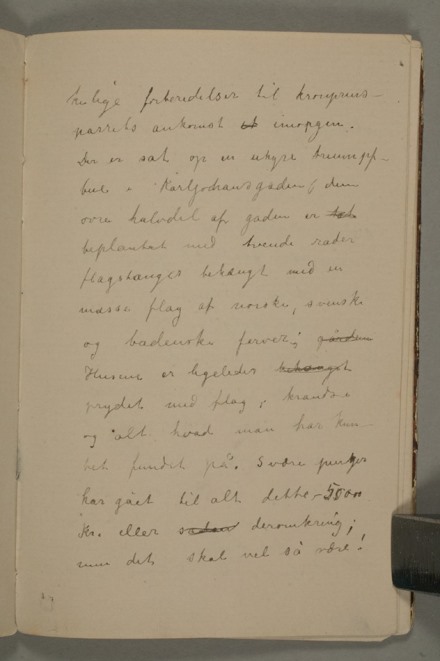 hulige forberedelser til kronprins-
parrets ankomst at imorgen.
Der er sat op en uhyre triumpf-
bue i Karl Johansgaden; den
øvre halvdel af gaden er
beplantet med tvende rader
flagstænger behængt med en
masse flag af norske, svenske
og badenske farver; gården
Husene er ligeledes behængt
prydet med flag, krandse
og alt hvad man har kun-
net fundet på. Svære penger
har gået til alt dette - 5000
Kr. eller sådan deromkring;
men det skal vel så være!